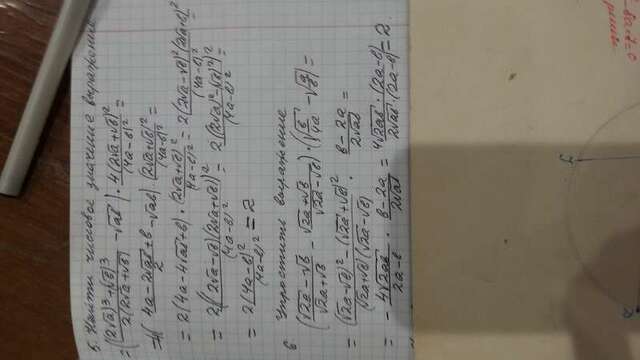 5. Найти числовое значение выражения
= ((2√a)³ + (√b)³ / 2(2√a + √b) - √ab) · 4(2√a + √b)² / (4a - b)² =
= 4( 4a - 2√ab + b / 2 - √ab) · (2√a + √b)² / (4a - b)² =
= 2(4a - 4√ab + b) · (2√a + √b)² / (4a - b)² = 2(2√a - √b)²(2√a + √b)² / (4a - b)² =
= 2((2√a - √b)(2√a + √b))² / (4a - b)² = 2((2√a)² - (√b)²)² / (4a - b)² =
= 2(4a - b)² / (4a - b)² = 2
6. Упростить выражение
(√2a - √b / √2a + √b - √2a + √b / √2a - √b) · (√b / 4a - √a / b) =
= (√2a - √b)² - (√2a + √b)² / (√2a + √b)(√2a - √b) · b - 2a / 2√ab =
= - 4√2ab / 2a - b · b - 2a / 2√ab = 4√2ab · (2a - b) / 2√ab · (2a - b) = 2